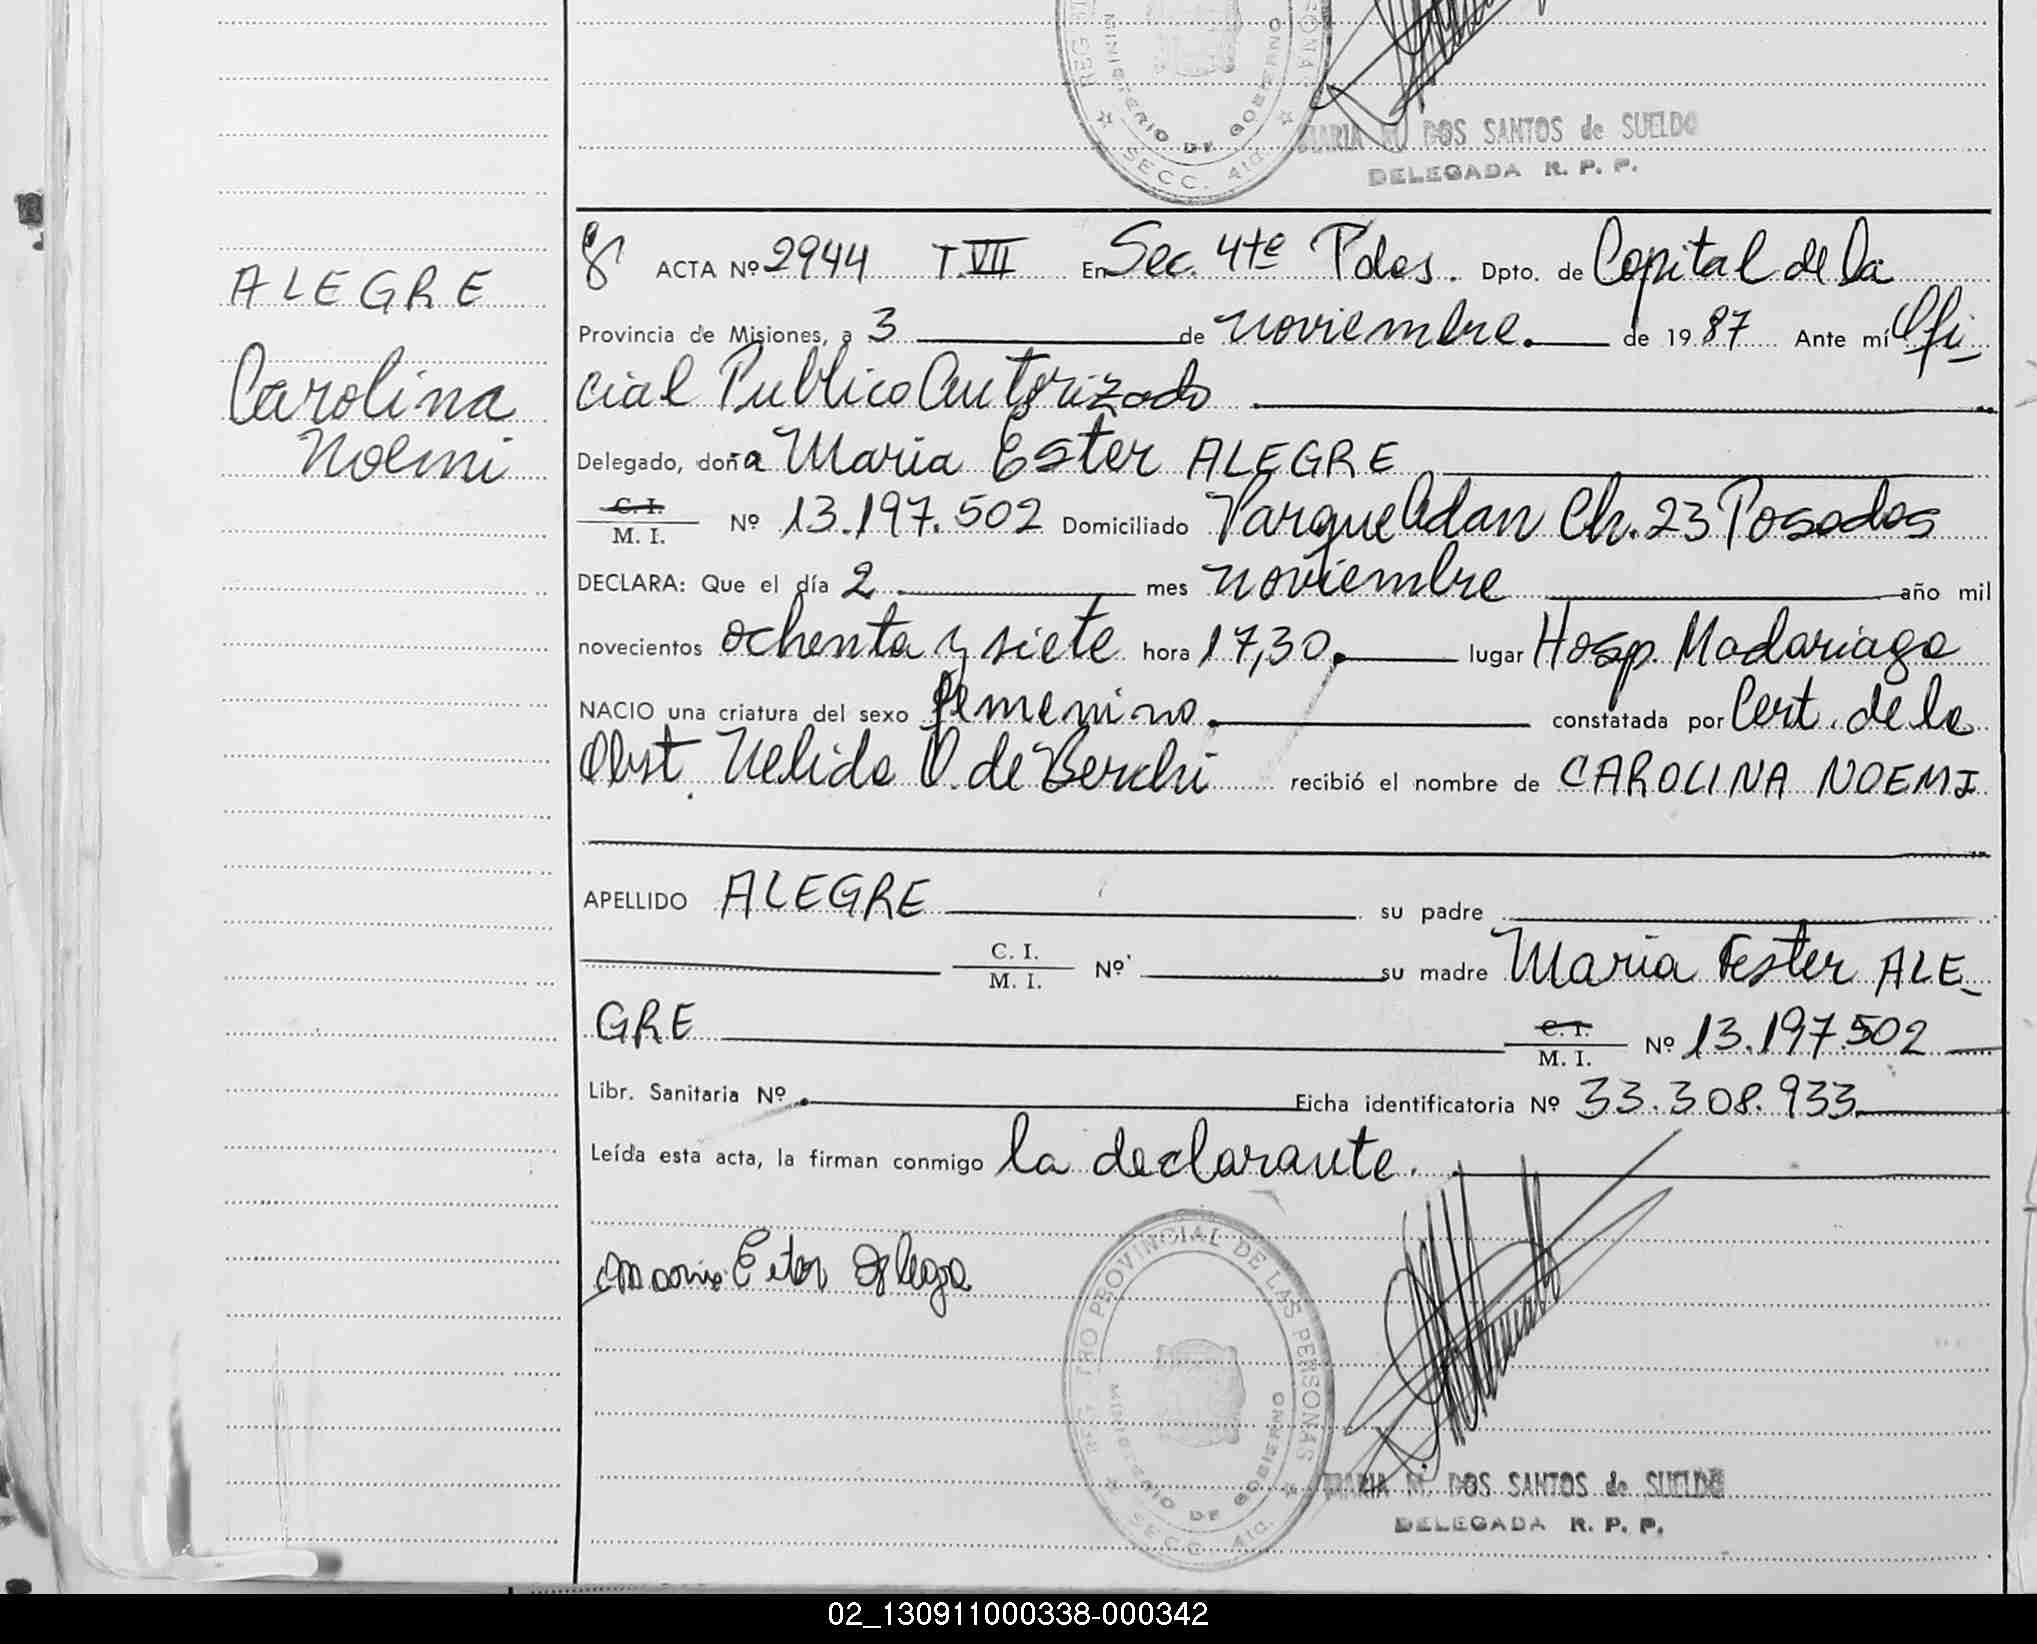 REGISTRO
PERSONAS
MINISTERIO DE GOBIERNO
SECC. 4ta.
MARIA M. DOS SANTOS de SUELDO
DELEGADA R. P. P.
ALEGRE
Carolina
Noemi
ACTA Nº 2944 T. VII En Sec. 4te Pdas. Dpto. de Capital de la
Provincia de Misiones, a 3 de noviembre. de 1987 Ante mí Ofi-
cial Publico Autorizado
Delegado, doña Maria Ester ALEGRE
C. I.
M. I. Nº 13.197.502 Domiciliado Parque Adan Ch. 23 Posadas
DECLARA: Que el día 2 mes noviembre año mil
novecientos ochenta y siete hora 17,30. lugar Hosp. Madariaga
NACIO una criatura del sexo femenino. constatada por Cert. de la
Obst. Nelida O. de Berchi recibió el nombre de CAROLINA NOEMI
APELLIDO ALEGRE su padre
C. I.
M. I. Nº su madre Maria Ester ALE-
GRE C. I.
M. I. Nº 13.197.502
Libr. Sanitaria Nº. Ficha identificatoria Nº 33.308.933
Leída esta acta, la firman conmigo la declarante.
Maria Ester Alegre
REGISTRO PROVINCIAL DE LAS PERSONAS
MINISTERIO DE GOBIERNO
SECC. 4ta.
MARIA M. DOS SANTOS de SUELDO
DELEGADA R. P. P.
02_130911000338-000342